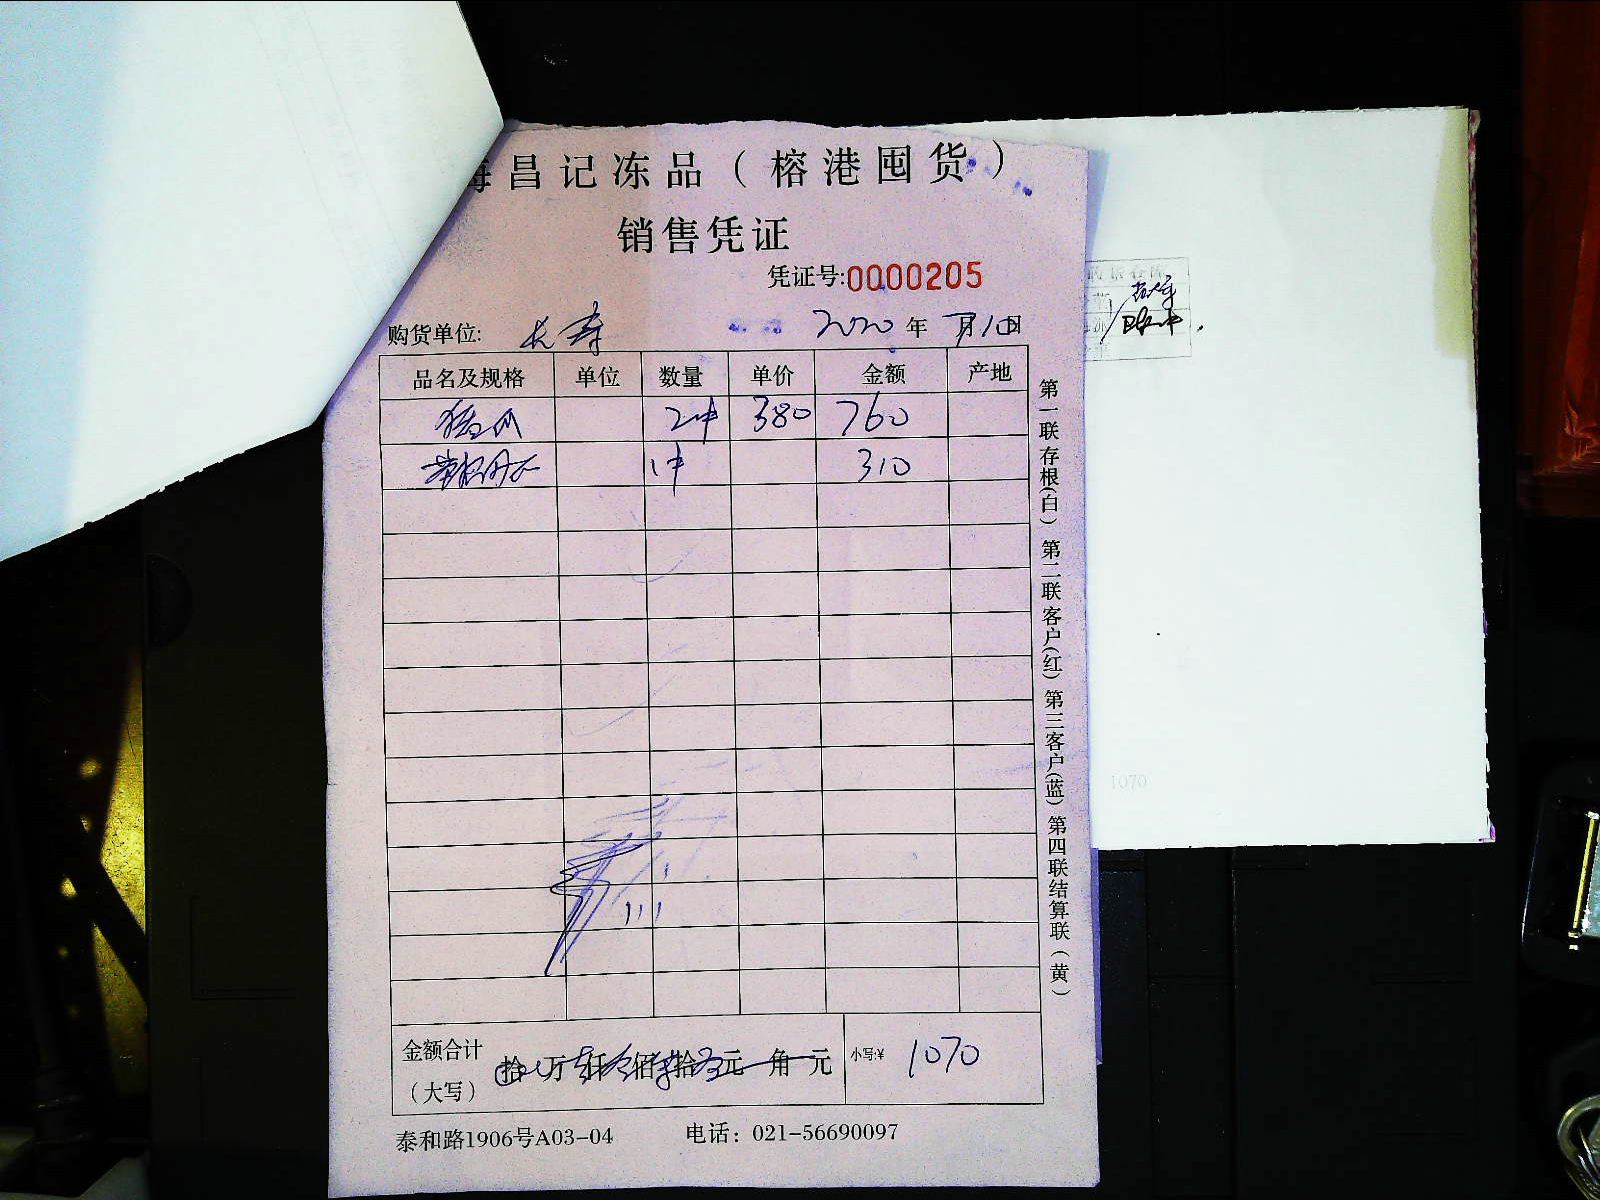 海昌记冻品（榕港囤货）
销售凭证
凭证号:0000205
购货单位: 长寿 2020年7月1日
品名及规格 单位 数量 单价 金额 产地
2件 380 760
1件 310
第一联存根(白) 第二联客户(红) 第三客户(蓝) 第四联结算联（黄）
金额合计 拾 万 仟 佰 拾 元 角 元 小写:¥ 1070
（大写）
泰和路1906号A03-04 电话：021-56690097
1070